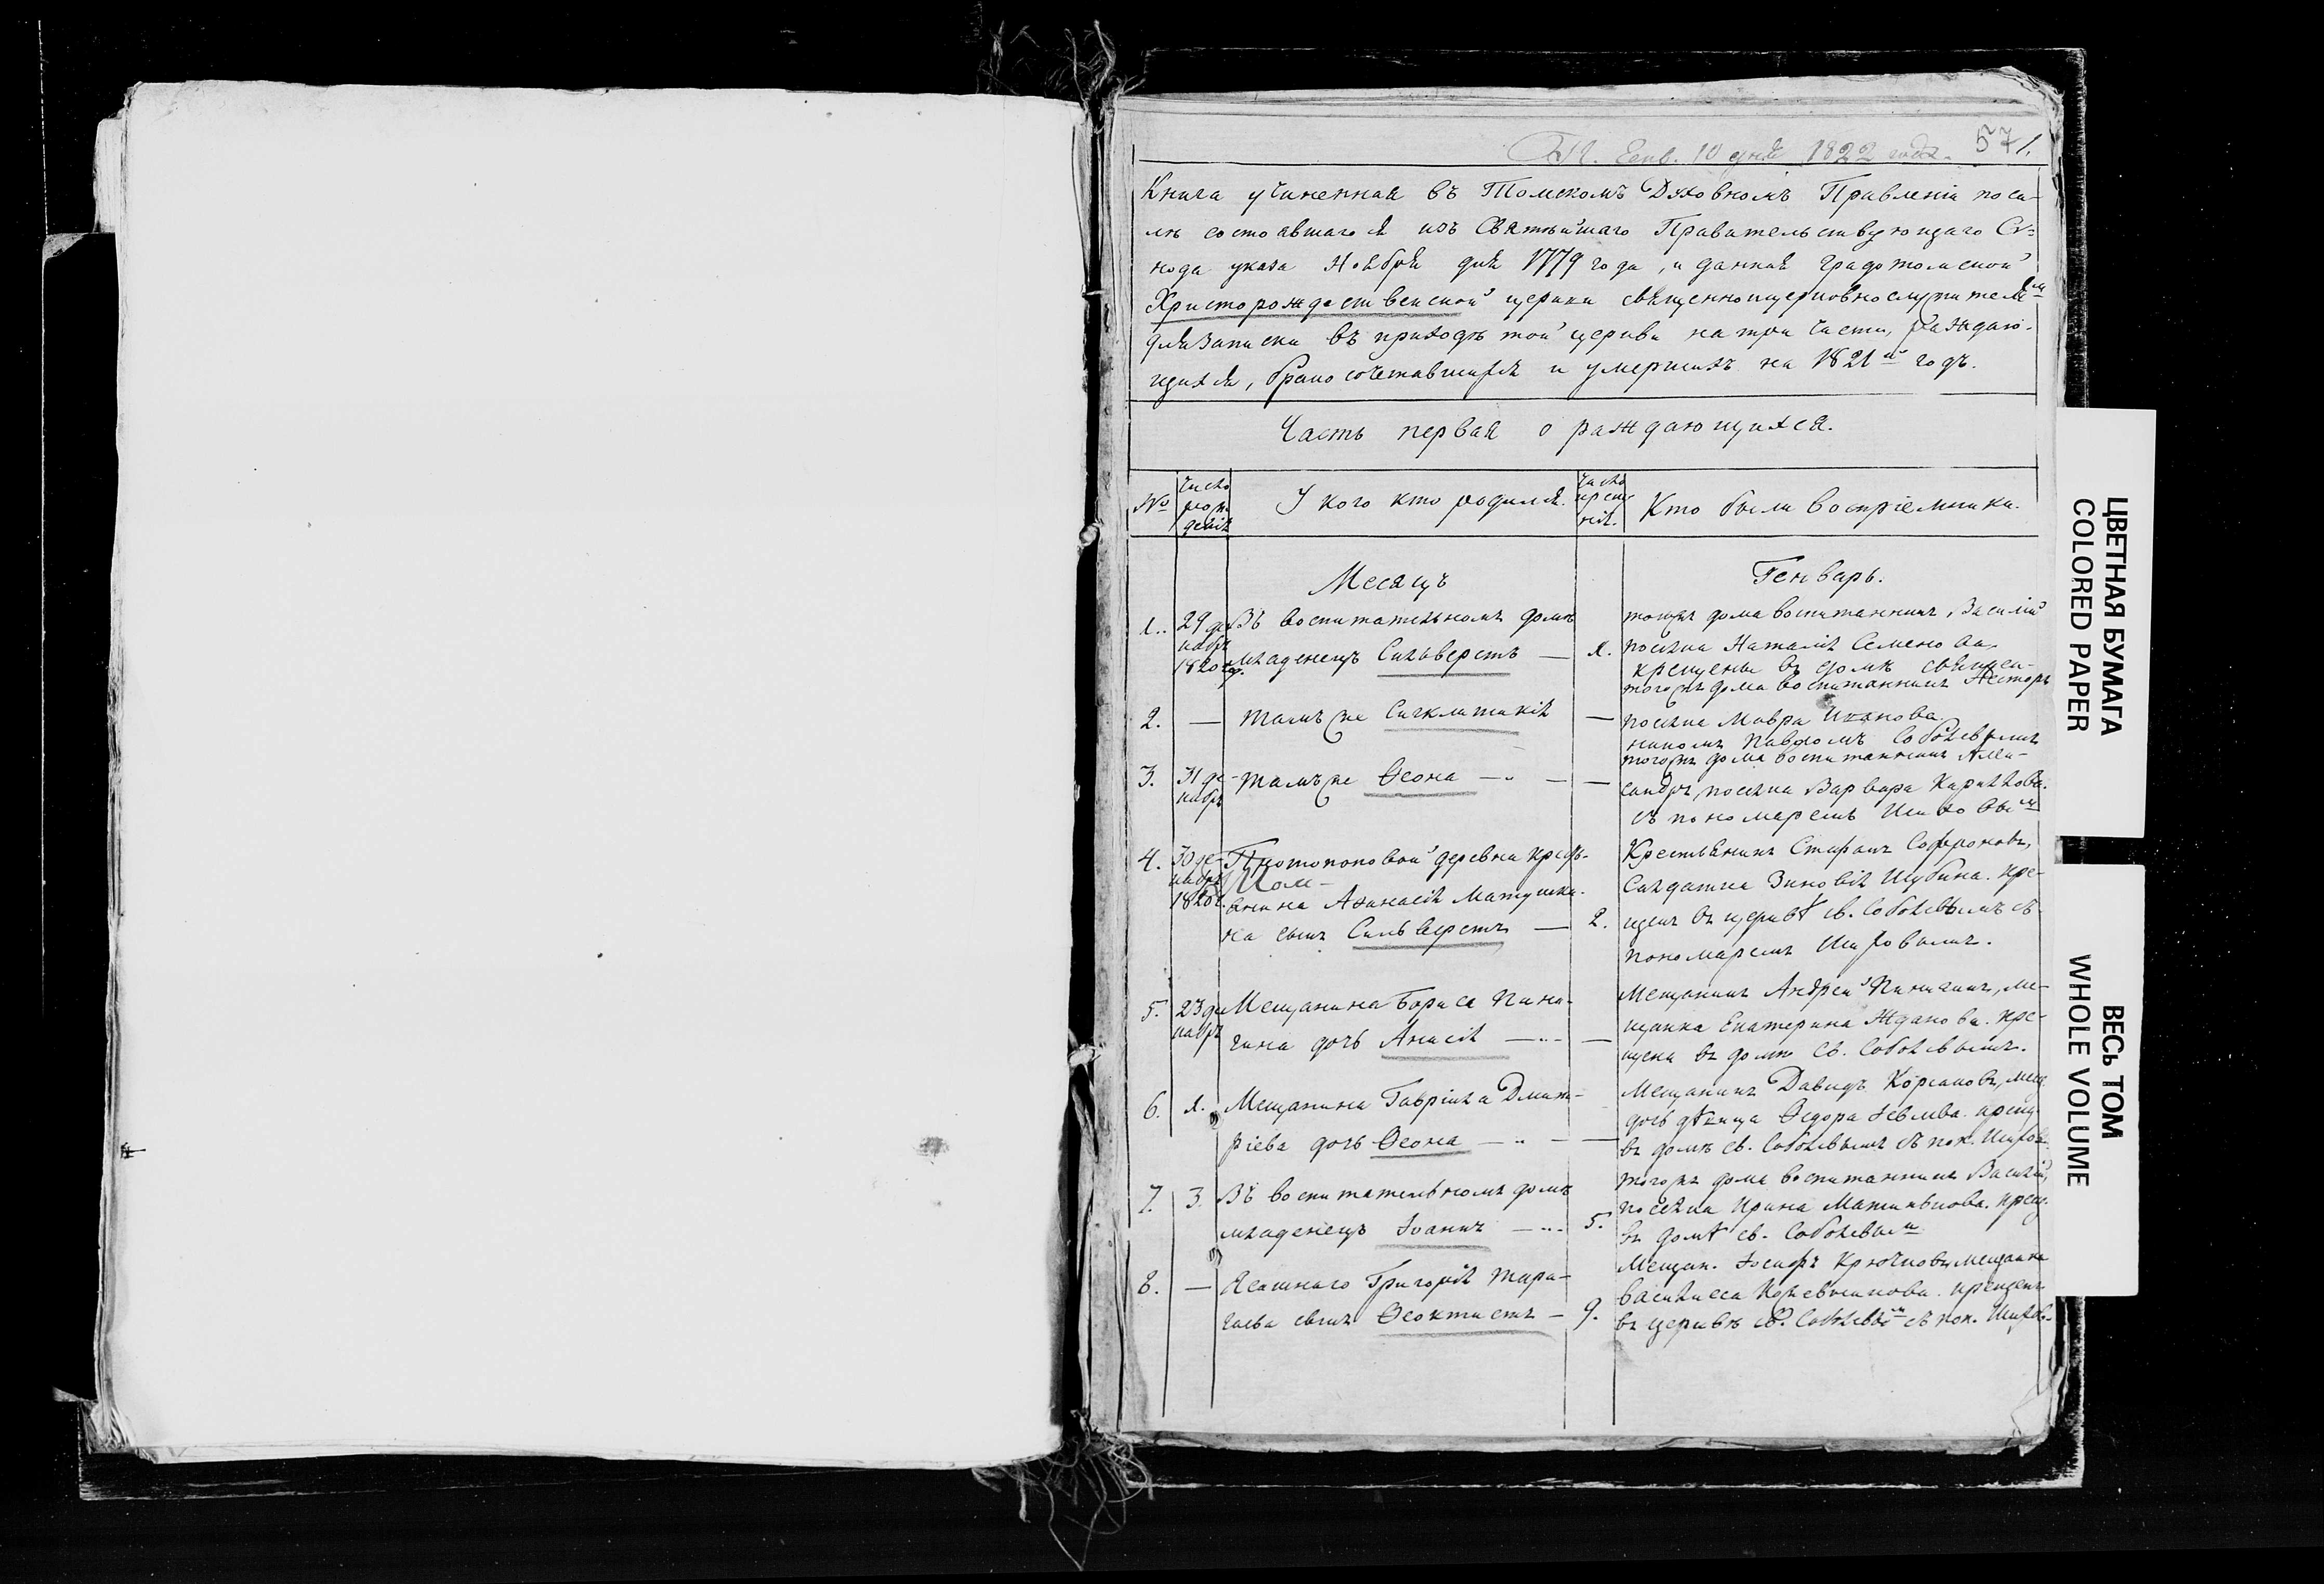 Генв. 10 дня 1822 года. 571.
Книга учиненная въ Томскомъ Духовномъ Правленіи по си-
лѣ состоявшагося изъ Святѣйшаго Правительствующаго Сѵ=
нода указа Ноября дня 1779 года, и данная градотомской
Христорождественской церкви священноцерковнослужителямъ
для записки въ приходѣ той церкви на три части, раждаю-
щихся, бракосочетавшихся и умершихъ на 1821й годъ.
Часть первая о раждающихся.
№
Число рож- денія
У кого кто родился.
Число креще- нія.
Кто были воспріемники.
Месяцъ
Генварь.
1. 29 де- кабря 1820 го.
Въ воспитательномъ домѣ
младенецъ Сильверстъ — 1.
тогожъ дома воспитанникъ Василій
посѣлка Наталія Семенова,
крещены въ домѣ священ-
2. — тамъ же Сигклитикія —
тогожъ дома воспитанникъ Несторъ
посѣлка Мавра Иванова.
никомъ Павломъ Соболевымъ
3. 31 де- кабря
тамъ же Ѳеона — —
тогожъ дома воспитанникъ Алек-
сандръ, посѣлка Варвара Кирилова.
съ пономаремъ Шиховымъ
4. 30 де- кабря 1820 г.
Протопоповой деревни кресть-
янина Афанасія Матушки-
на сынъ Сильверстъ — 2.
Крестьянинъ Стефанъ Софроновъ,
Солдатка Зиновія Шубина. кре-
щенъ въ церквѣ св. Соболевымъ съ
пономаремъ Шиховымъ.
5. 23 де- кабря
Мещанина Бориса Пини-
гина дочь Анисія — —
Мещанинъ Андрей Пинигинъ, ме-
щанка Екатерина Жданова. кре-
щена въ домѣ св. Соболевымъ.
6. 1. Мещанина Гавріила Дмит-
ріева дочь Ѳеона — —
Мещанинъ Давидъ Корсаковъ, мещ.
дочь дѣвица Ѳедора креще.
въ домѣ св. Соболевымъ съ пон. Шихов.
7. 3. Въ воспитательномъ домѣ
младенецъ Іоаннъ — 5.
тогожъ дома воспитанникъ Василій,
посѣлка Ирина Мативьнова. крещ.
въ домѣ св. Соболевымъ
8. — Ясашнаго Григорія Тира-
гаева сынъ Ѳеоктистъ — 9.
Мещан. Іосифъ Крючковъ, мещанка
Василиса Кожевникова. крещенъ
въ церквѣ св. Соболевымъ съ пон. Шихов.
ЦВЕТНАЯ БУМАГА
COLORED PAPER
ВЕСЬ ТОМ
WHOLE VOLUME